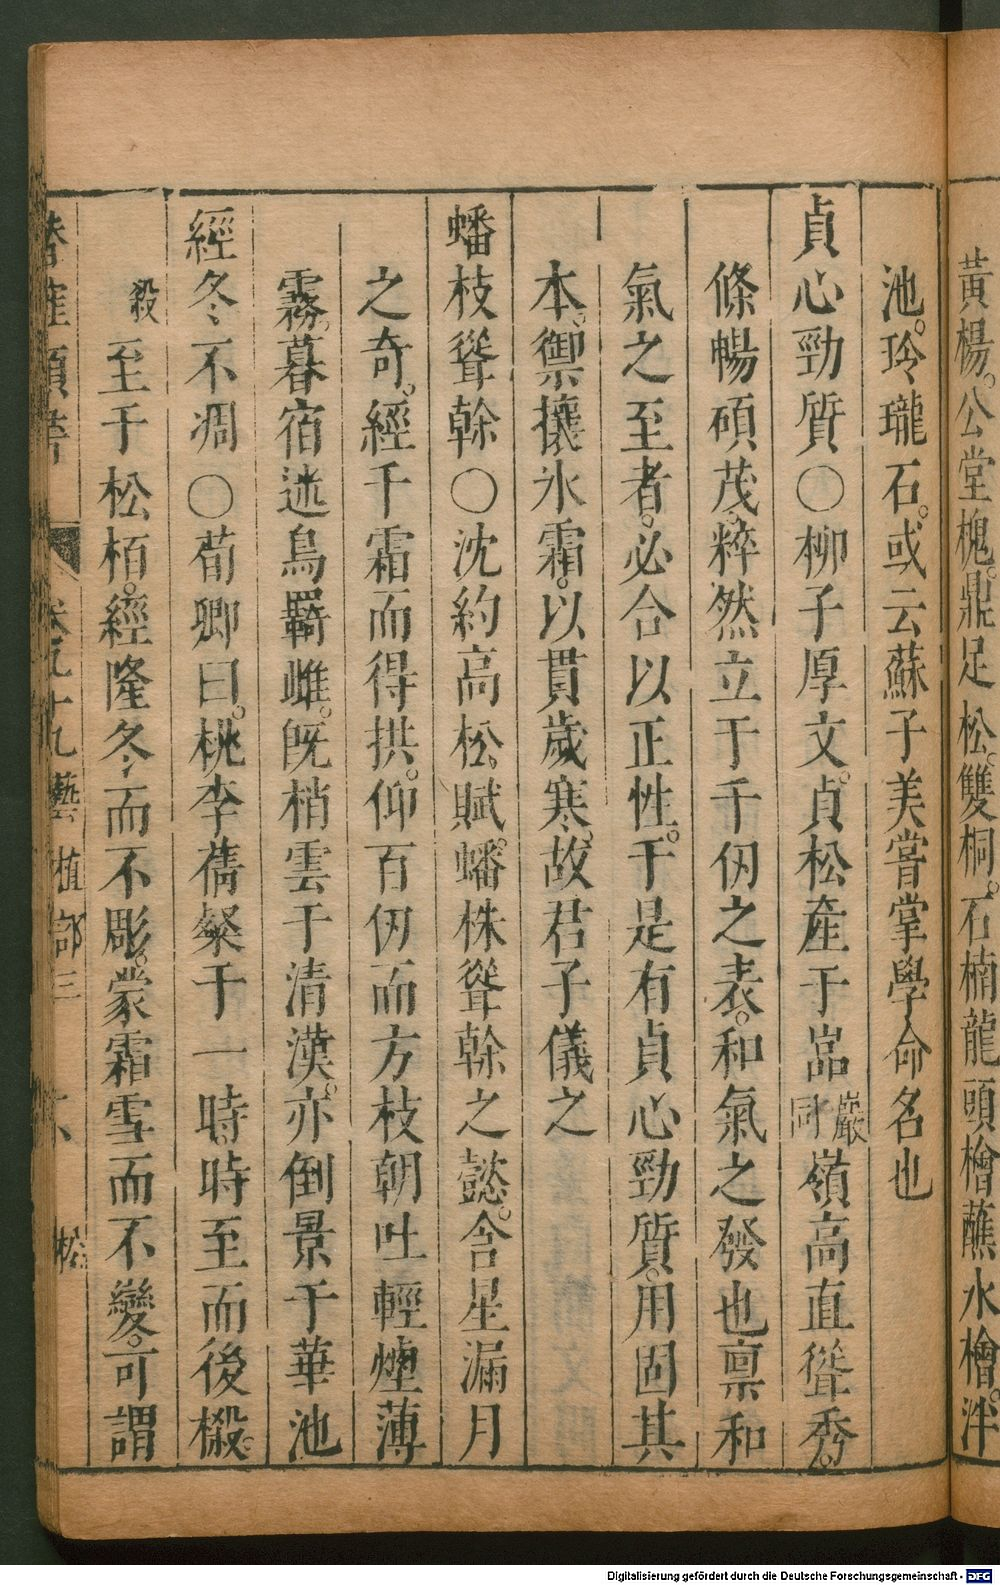 黃楊。公堂槐。鼎足松。雙桐。石楠龍頭檜蘸水檜。泮
池。玲瓏石。或云蘇子美嘗掌學命名也
貞心勁質○柳子厚文。貞松產于嵓巖同嶺高直聳秀。
條暢碩茂。粹然立于千仞之表。和氣之發也稟和
氣之至者。必合以正性。于是有貞心勁質。用固其
本。禦攘氷霜。以貫歲寒。故君子儀之
蟠枝聳幹○沈約高松賦。蟠株聳幹之懿。含星漏月
之奇。經千霜而得拱。仰百仞而方枝朝吐輕煙薄
霧。暮宿迷鳥羇雌。既梢雲于清漢。亦倒景于華池
經冬不凋○荀卿曰。桃李蒨粲于一時。時至而後樧。
殺至于松栢。經隆冬而不彫。蒙霜雪而不變。可謂
卷九十九藝植部三 六 松
Digitalisierung gefördert durch die Deutsche Forschungsgemeinschaft - DFG